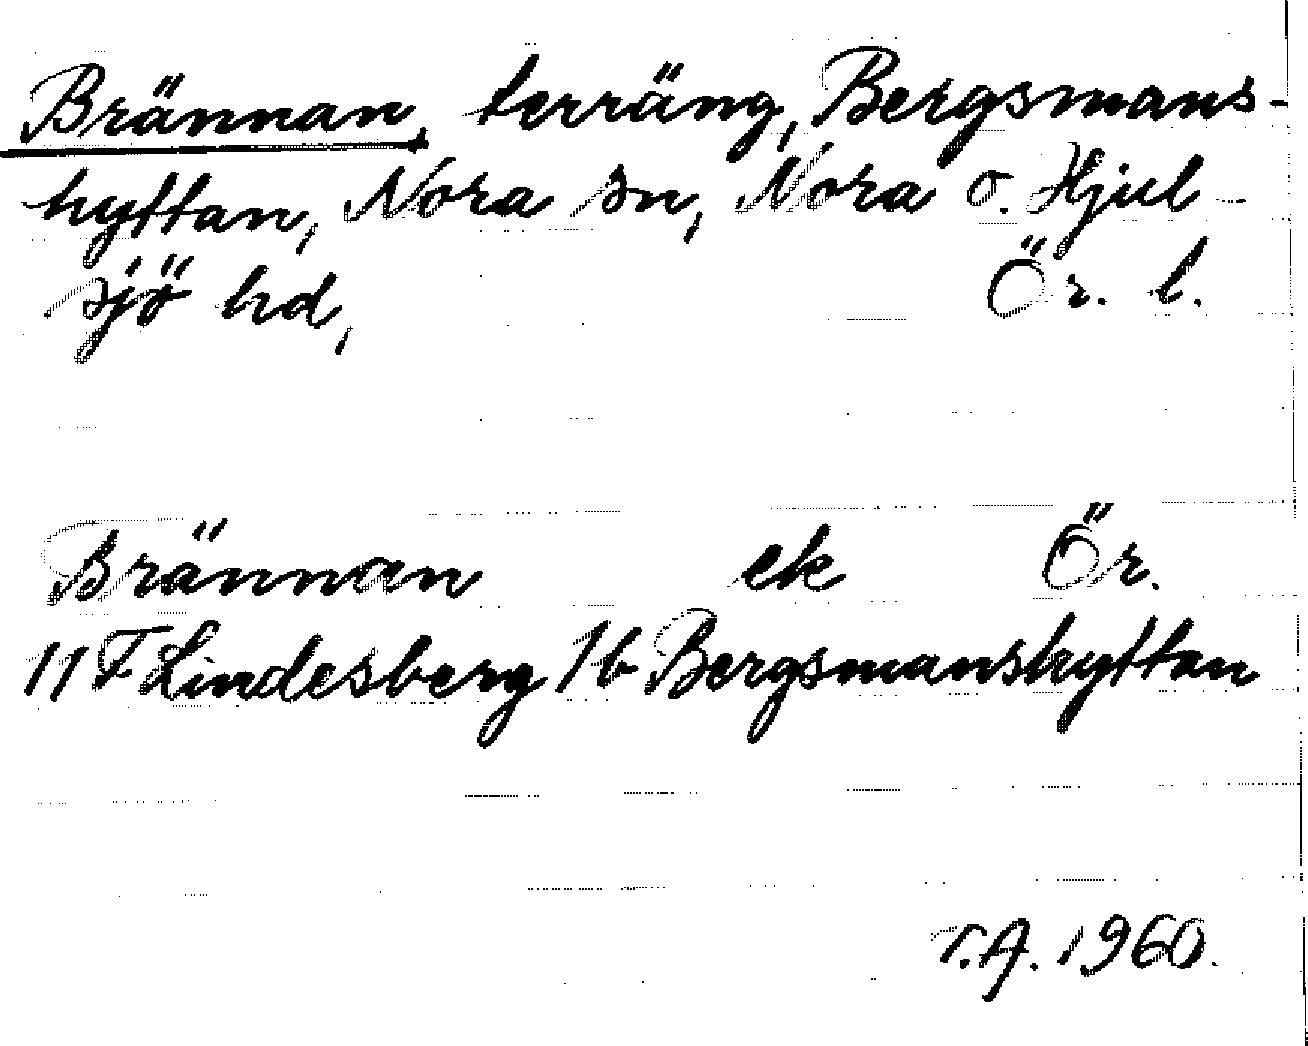 Brännan, terräng, Bergsmans-
hyttan, Nora sn, Nora o. Hjul-
sjö hd, Ör. l.
Brännan ek Ör.
11 F Lindesberg 1b Bergsmanshyttan
T.A. 1960.